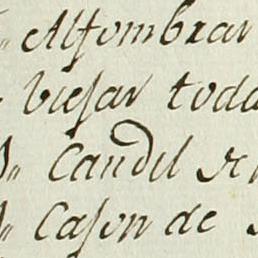 Alfombrar
Viejar toda
Candil
Cajon de